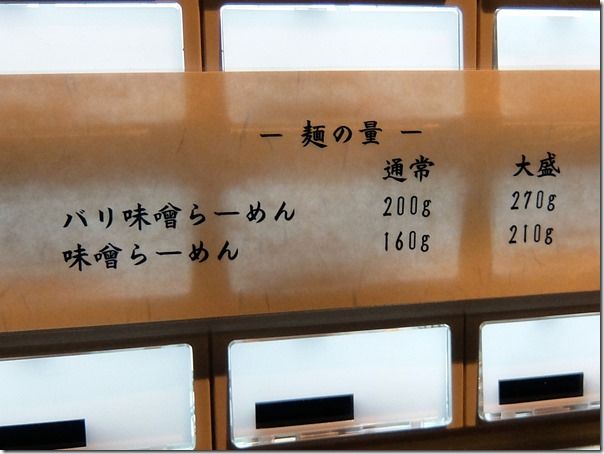 ― 麺の量 ―
通常 大盛
バリ味噌らーめん 200g 270g
味噌らーめん 160g 210g